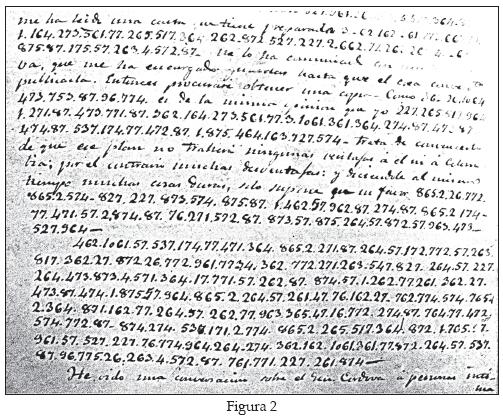 me ha leido una carta tiene preparada 3-
1.164.273.561.77.265.517.364 262.872 527.227.2.662.72.26.
875.87.175.57.263.4.572.87- no lo ha comunicado
va, que me ha encargado hasta que el crea
publicarla. Entonces procuraré obtener una copia- Como
473.753.87.96.774. es de la misma opinion que yo 227.265.517.964
1.271.87.473.771.87.362.164.273.561.77.3.1061.361.364.274.87.47.87
474.87.537.174.77.472.87.1.875.464.163.727.574- trata de
de que ese plan no traherá ningunas ventajas á el ni á
bia; por el contrario muchas desventajas: y diciendole al mismo
tiempo muchas cosas duras, solo supone que un favor 865.2.26.772.
865.2.574- 827.227.873.574.875.87.1.462.57.962.87.274.87.865.2.174-
77.471.57.2.874.87.76.271.572.87.873.57.875.264.57.872.57.963.473-
527.964-
462.1061.57.537.174.77.471.364.865.2.271.87.264.57.172.772.57.263.
817.362.27.872.26.772.961.7734.362.772.271.263.547.827.264.57.227.
264.473.873.4.571.364.17.771.57.262.87.874.57.1.262.77.261.362.27-
473.87.474.1.875.57.964.865.2.204.57.261.47.76.162.27.762.774.574.7654
2.364.871.162.77.264.57.262.77.903.365.47.16.772.274.87.764.77.472,
574.772.87-874.274.534.171.2.774.865.2.265.517.364.872.1.705.57.
961.57.527.227.76.774.964.264.274.362.162.1061.361.77.872.264.57.537.
87.96.775.26.263.4.572.87.761.771.227.261.874-
He oido una conversacion sobre el Gen. Cordova á personas
Figura 2